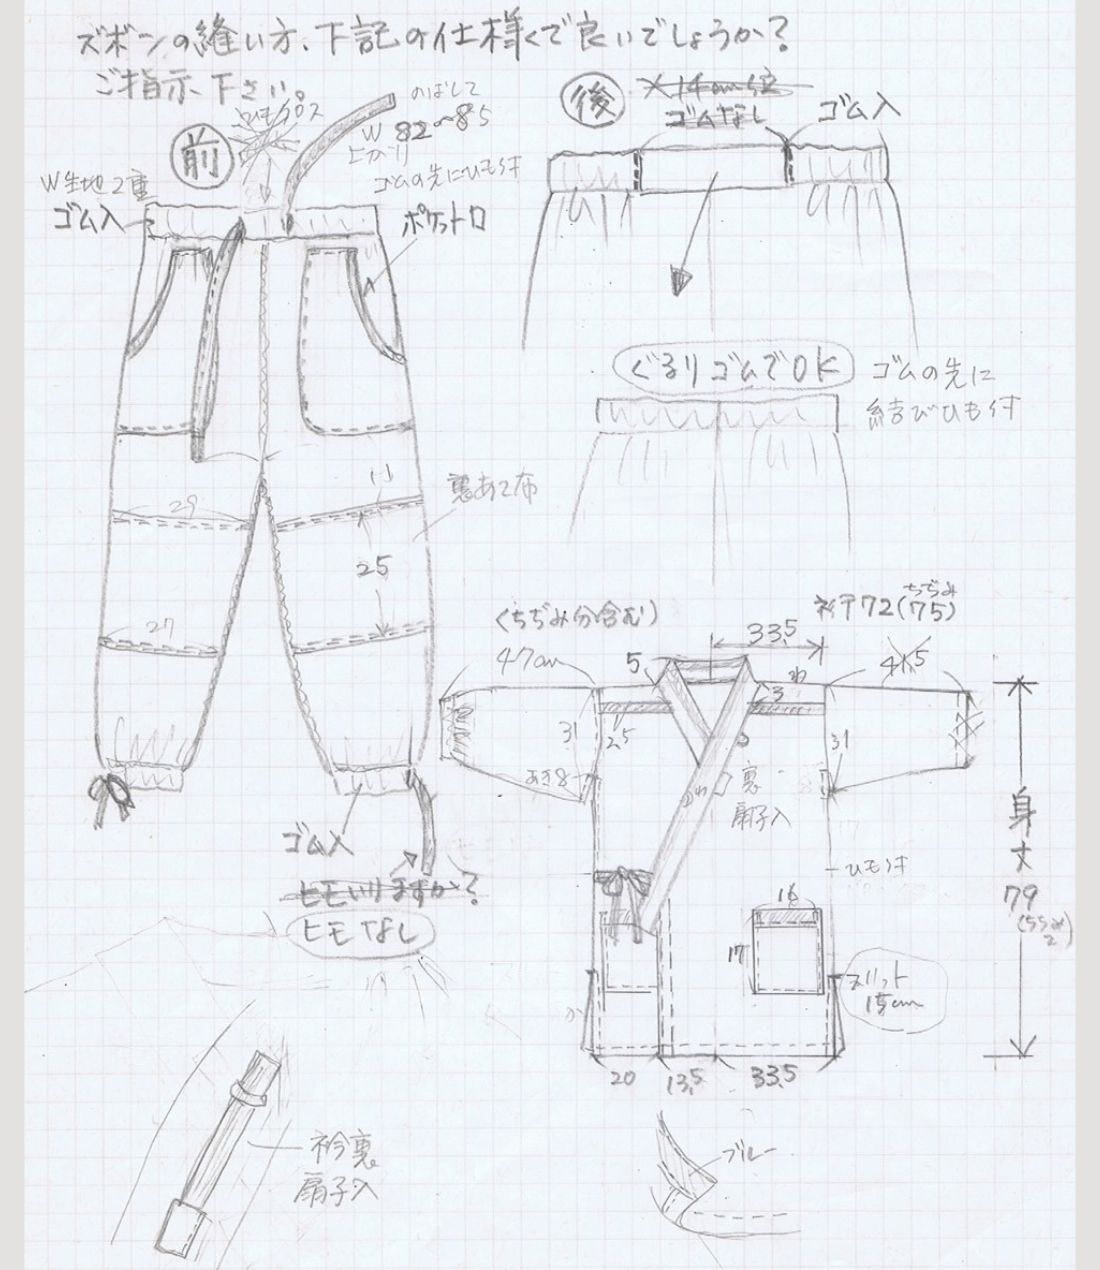 ズボンの縫い方、下記の仕様で良いでしょうか?
ご指示下さい。
前
のばして
W 82〜85
上がり
ゴムの先にひも付
W生地2重
ゴム入
ポケット口
後
ゴムなし
ゴム入
ぐるりゴムでOK
ゴムの先に
結びひも付
29
11
裏あて布
25
27
ゴム入
ヒモいりますか?
ヒモなし
(ちぢみ分含む)
47cm
裄丈72(75)
ちぢみ
33.5
5
41.5
3
わ
31
25
31
あき8
裏
扇子入
ひも付
身丈
79
16
17
スリット
15cm
20
13.5
33.5
衿裏
扇子入
ブルー